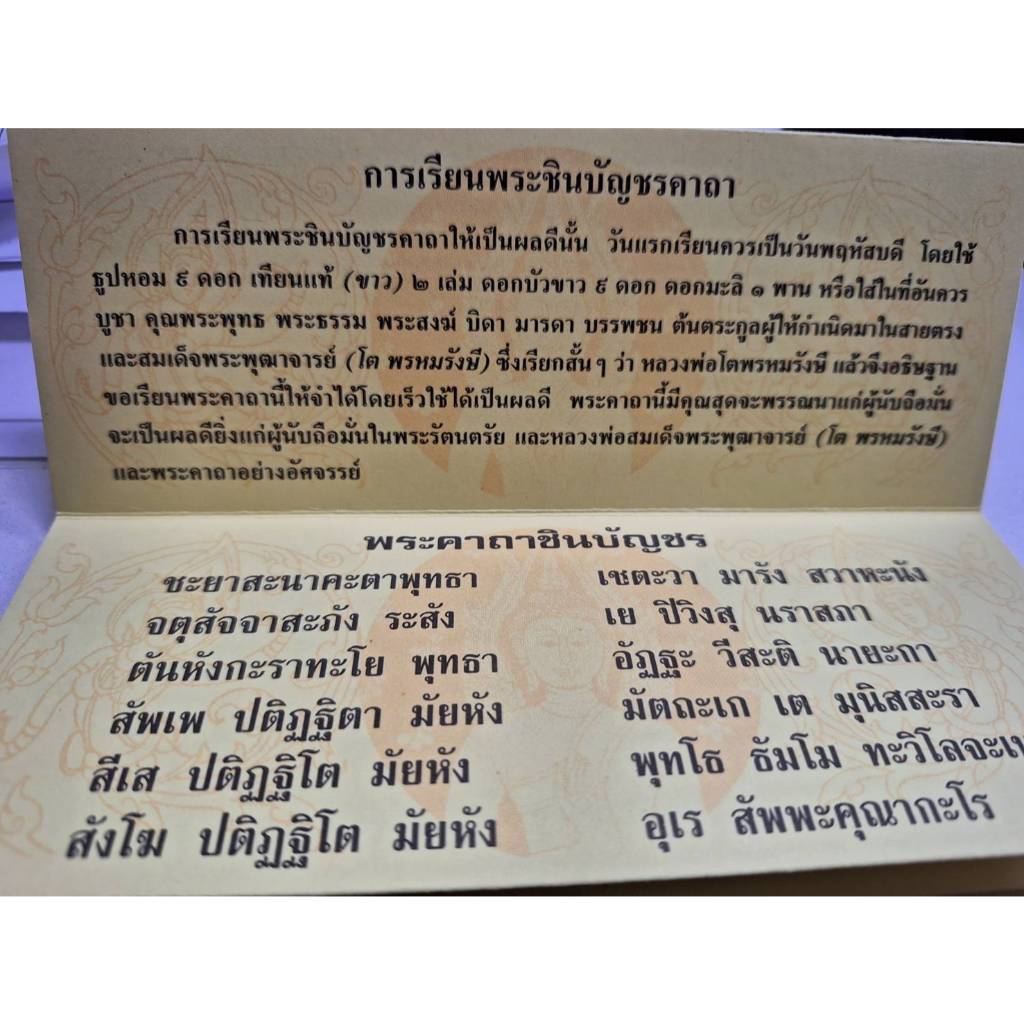 การเรียนพระชินบัญชรคาถา
การเรียนพระชินบัญชรคาถาให้เป็นผลดีนั้น วันแรกเรียนควรเป็นวันพฤหัสบดี โดยใช้
ธูปหอม ๙ ดอก เทียนแท้ (ขาว) ๒ เล่ม ดอกบัวขาว ๙ ดอก ดอกมะลิ ๑ พาน หรือใส่ในที่อันควร
บูชา คุณพระพุทธ พระธรรม พระสงฆ์ บิดา มารดา บรรพชน ต้นตระกูลผู้ให้กำเนิดมาในสายตรง
และสมเด็จพระพุฒาจารย์ (โต พรหมรังษี) ซึ่งเรียกสั้นๆ ว่า หลวงพ่อโตพรหมรังษี แล้วจึงอธิษฐาน
ขอเรียนพระคาถานี้ให้จำได้โดยเร็วใช้ได้เป็นผลดี พระคาถานี้มีคุณสุดจะพรรณนาแก่ผู้นับถือมั่น
จะเป็นผลดียิ่งแก่ผู้นับถือมั่นในพระรัตนตรัย และหลวงพ่อสมเด็จพระพุฒาจารย์ (โต พรหมรังษี)
และพระคาถาอย่างอัศจรรย์
พระคาถาชินบัญชร
ชะยาสะนาคะตาพุทธา เชตะวา มารัง สวาหะนัง
จตุสัจจาสะภัง ระสัง เย ปิวิงสุ นราสภา
ตันหังกะราทะโย พุทธา อัฏฐะ วีสะติ นายะกา
สัพเพ ปติฏฐิตา มัยหัง มัตถะเก เต มุนิสสะรา
สีเส ปติฏฐิโต มัยหัง พุทโธ ธัมโม
สังโฆ ปติฏฐิโต มัยหัง อุเร สัพพะคุณากะโร